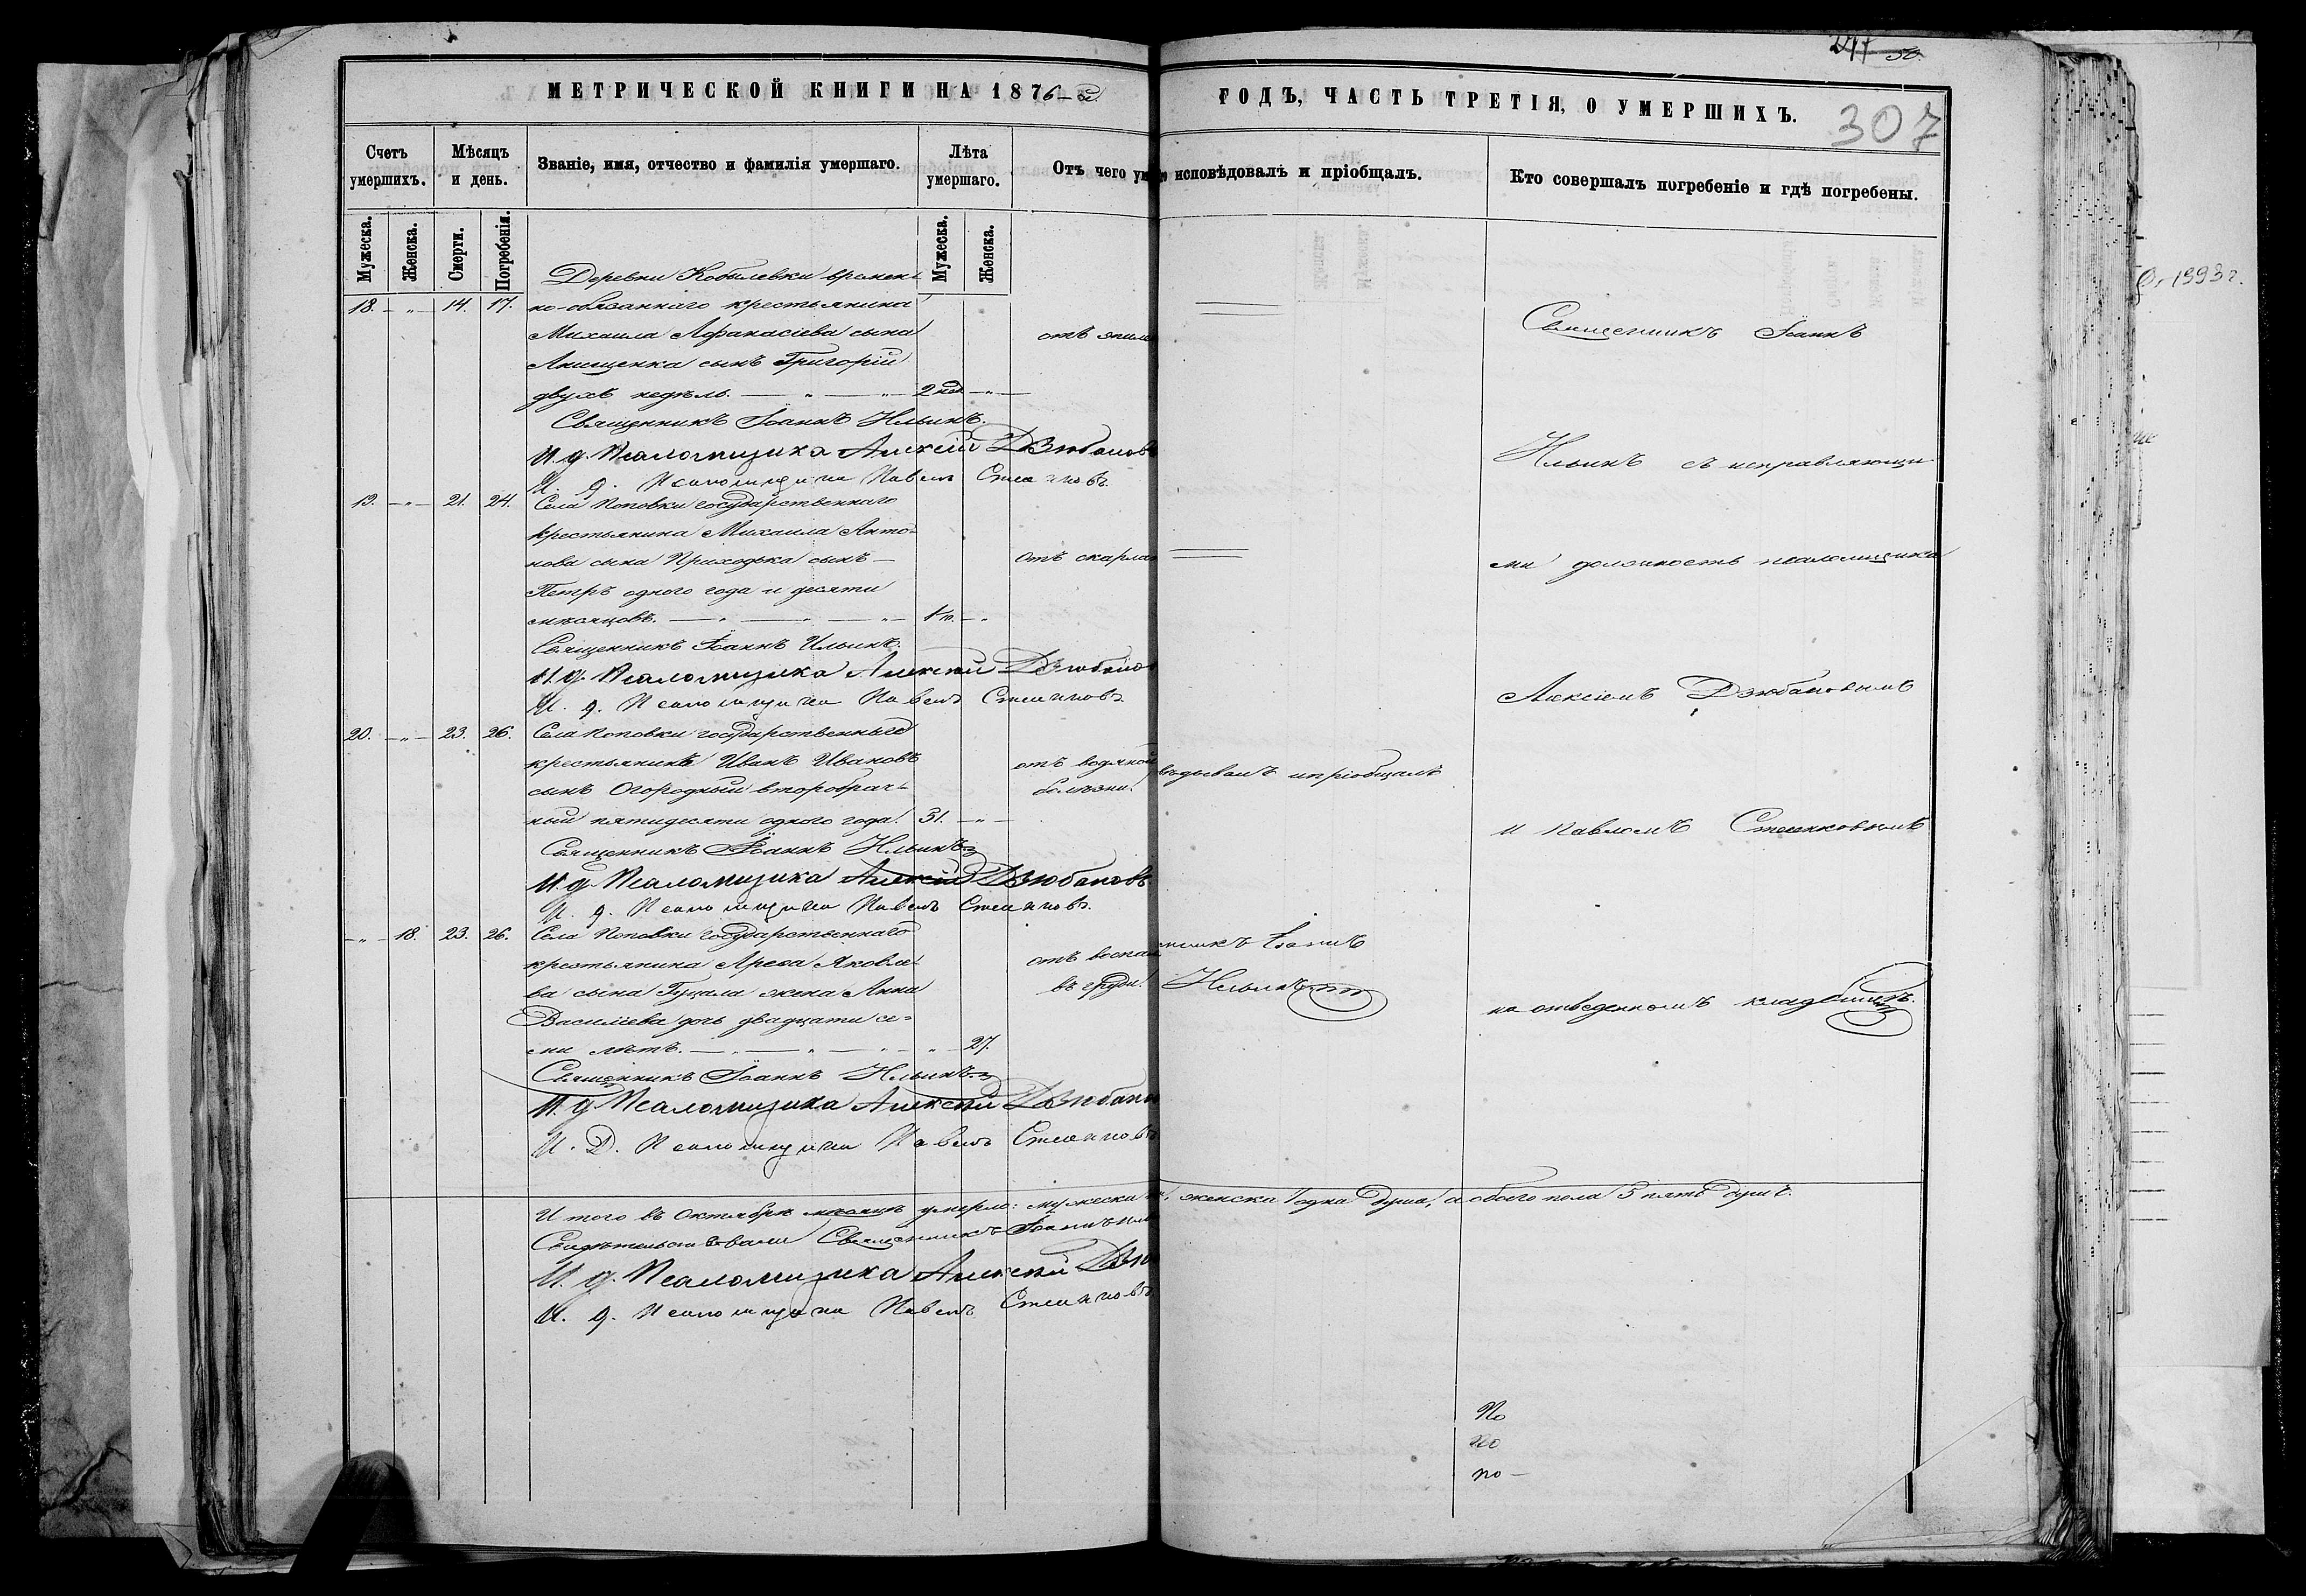 МЕТРИЧЕСКОЙ КНИГИ НА 1876-й
ГОДЪ, ЧАСТЬ ТРЕТІЯ, О УМЕРШИХЪ.
307
Счетъ умершихъ.
Мѣсяцъ и день.
Званіе, имя, отчество и фамилія умершаго.
Лѣта умершаго.
Отъ чего ум
исповѣдовалъ и пріобщалъ.
Кто совершалъ погребеніе и гдѣ погребены.
Мужеска.
Женска.
Смерти.
Погребенія.
Мужеска.
Женска.
Деревни Кобылевки времен-
18. — „ — 14. 17. но-обязаннаго крестьянина
Михаила Афанасіева сына
Анищенка сынъ Григорій
двухъ недѣль. — „ — „ — 2 нед. — „ —
Священникъ Іоаннъ Ильинъ.
И. д. Псаломщика Алексій Дзюбановъ
И. д. Псаломщика Павелъ
19. — „ — 21. 24. Села Поповки государственнаго
крестьянина Михаила Анто-
нова сына Приходька сынъ —
отъ скарла
Петръ одного года и десяти
мѣсяцовъ. — „ — „ — „ —
Священникъ Іоаннъ Ильинъ.
И. д. Псаломщика Алексій Дзюбанов
И. д. Псаломщика Павелъ
20. — „ — 23. 26. Села Поповки государственный
крестьянинъ Иванъ Ивановъ
сынъ Огородный второбрач-
ный пятидесяти одного года. 51. — „ —
отъ водяной
болѣзни.
Священникъ Іоаннъ Ильинъ
И. д. Псаломщика Алексій Дзюбановъ
И. д. Псаломщика Павелъ
— „ — 18. 23. 26. Села Поповки государственнаго
крестьянина Арефа Яковле-
ва сына Гуцала жена Анна
Василіева дочь двадцати се-
ми лѣтъ. — „ — „ — „ — „ — 27.
отъ воспал
въ груди.
Священникъ Іоаннъ Ильинъ
И. д. Псаломщика Алексій Дзюбано
И. Д. Псаломщика Павелъ
Итого въ Октябрѣ мѣсяцѣ умерло: мужеска
Свидѣтельствовали Священникъ Іоаннъ Иль
И. д. Псаломщика Алексій Дзю
И. д. Псаломщика Павелъ
вѣдывалъ и пріобщалъ
никъ Іоаннъ
Ильинъ
женска 1 одна душа, а обоего пола 5 пять душъ.
Священникъ Іоаннъ
Ильинъ съ исправляющи-
ми должность псаломщика
Алексіемъ Дзюбановымъ
и Павломъ
на отведенномъ кладбищѣ.
По
по
по —